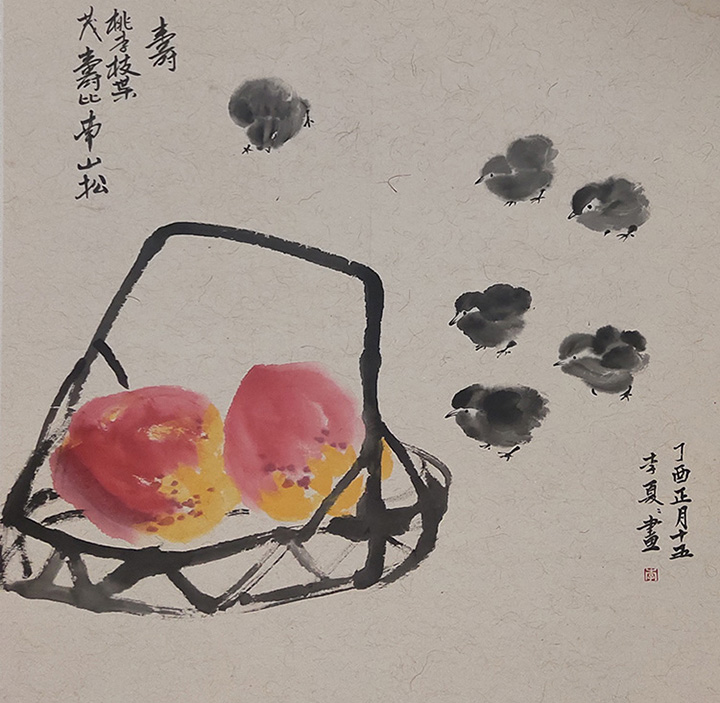 壽
桃子枝葉
茂壽比南山松
丁酉正月十五
李夏〻畫